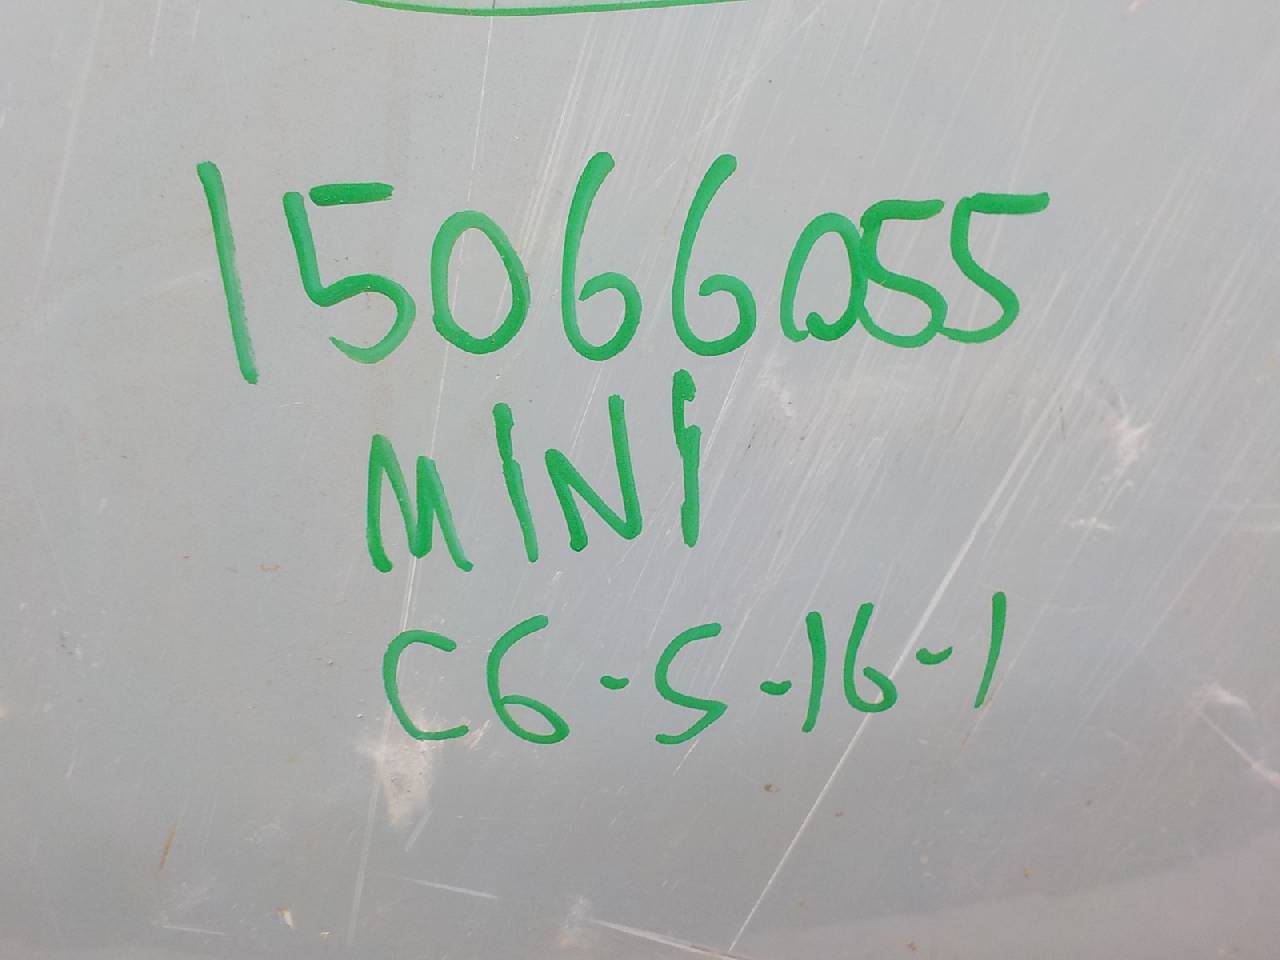 15066055
MINI
C6-S-16-1